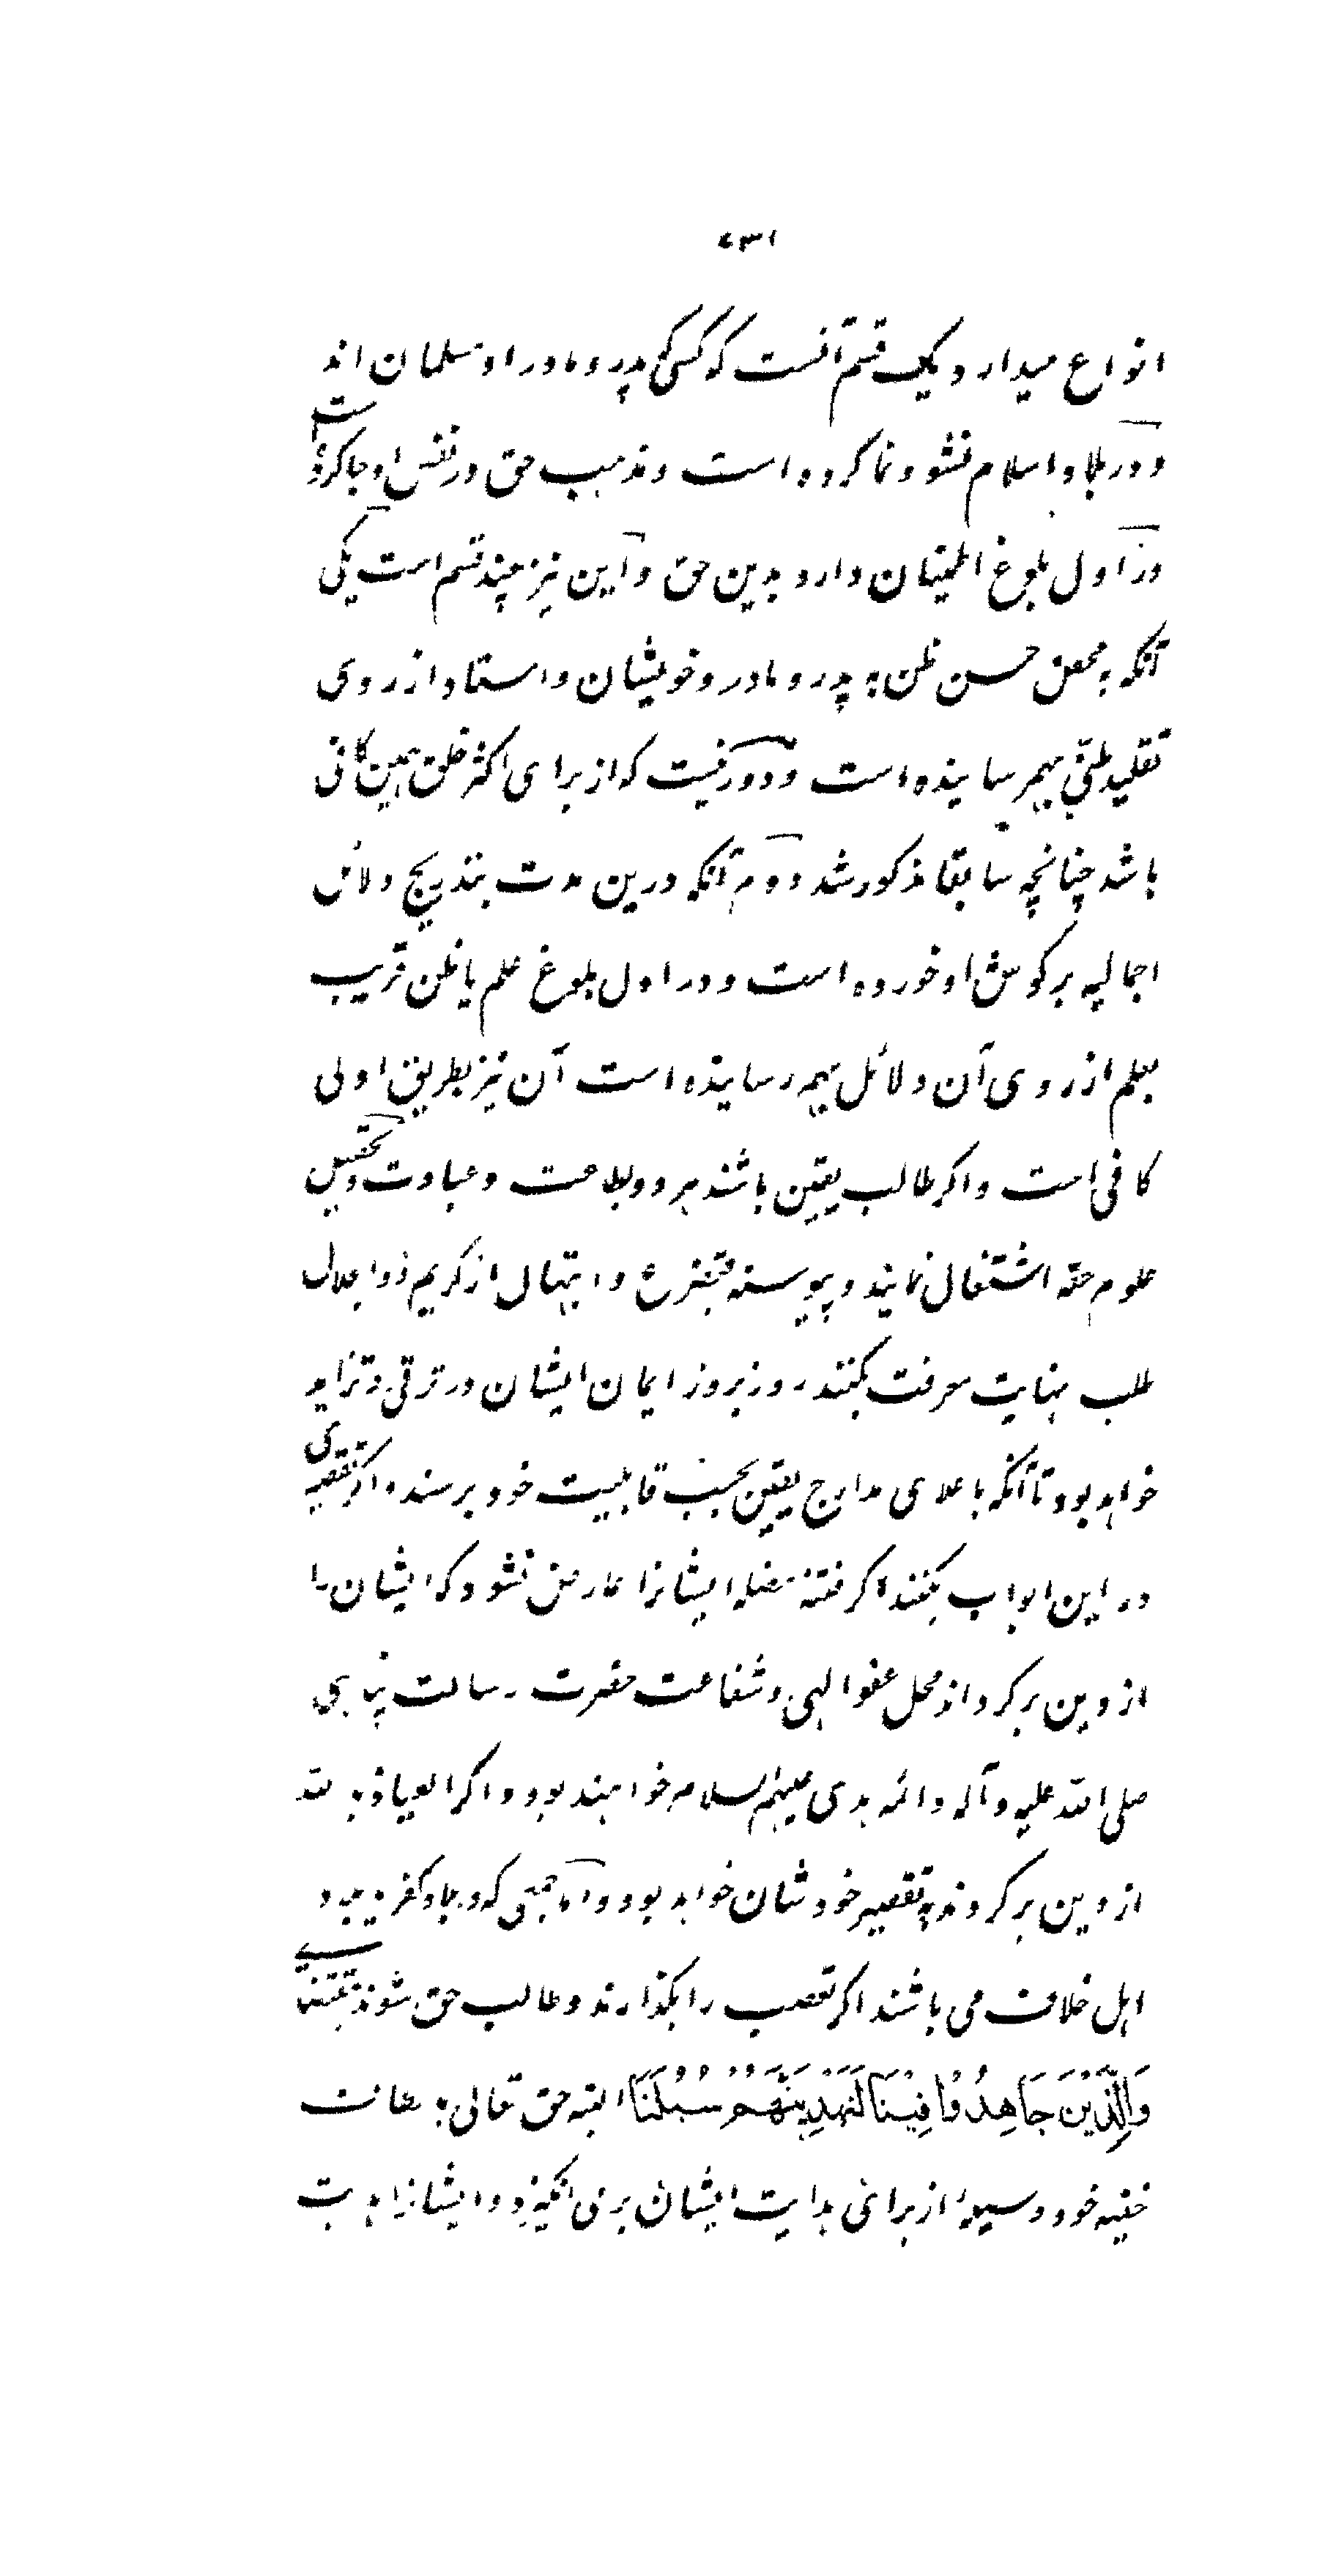 ۷۳۱
انواع میدارد یک قسم آنست که کسی که پدر و مادر او مسلمان اند
و در بلاد اسلام نشو و نما کرده است و مذهب حق در نفس او جا کرده است
در اول بلوغ اطمینان دارد بدین حق و این نیز چند قسم است یکی
آنکه به محض حسن ظن به پدر و مادر و خویشان و استاد از روی
تقلید ظنی بهم رسانیده است و دور نیست که از برای اکثر خلق همین کافی
باشد چنانچه سابقا مذکور شد دوم آنکه درین مدت بتدریج دلائل
اجمالیه بر کوش او خورده است و در اول بلوغ علم یا ظن قریب
بعلم از روی آن دلائل بهم رسانیده است آن نیز بطریق اولی
کافی است و اکر طالب یقین باشند هر دو بطاعت و عبادت و تحصیل
علوم حقه اشتغال نمایند و پیوسته بتضرع و ابتهال از کریم ذو الجلال
طلب نهایت معرفت بکنند روز بروز ایمان ایشان در ترقی و تزاید
خواهد بود تا آنکه باعلای مدارج یقین بحسب قابلیت خود برسند و اکر تقصیری
در این ابواب بکنند اکر فتنه مضله ایشانرا عارض نشود که ایشان را
از دین بر کرداند محل عفو الهی و شفاعت حضرت رسالت پناهی
صلی الله علیه و آله و ائمه هدی علیهم السلام خواهند بود و اکر العیاذ بالله
از دین بر کردند به تقصیر خودشان خواهد بود و اما جمعی که در بلاد کفر و بلاد
اهل خلاف می باشند اکر تعصب را بکذارند و طالب حق شوند بمقتضای
وَالَّذِیْنَ جَاهِدُوْا فِیْنَا لَنَهْدِیَنَّهُمْ سُبُلَنَا البته حق تعالی بلطائف
خفیه خود وسیلهٔ از برای هدایت ایشان بر می انکیزد و ایشانرا هدایت